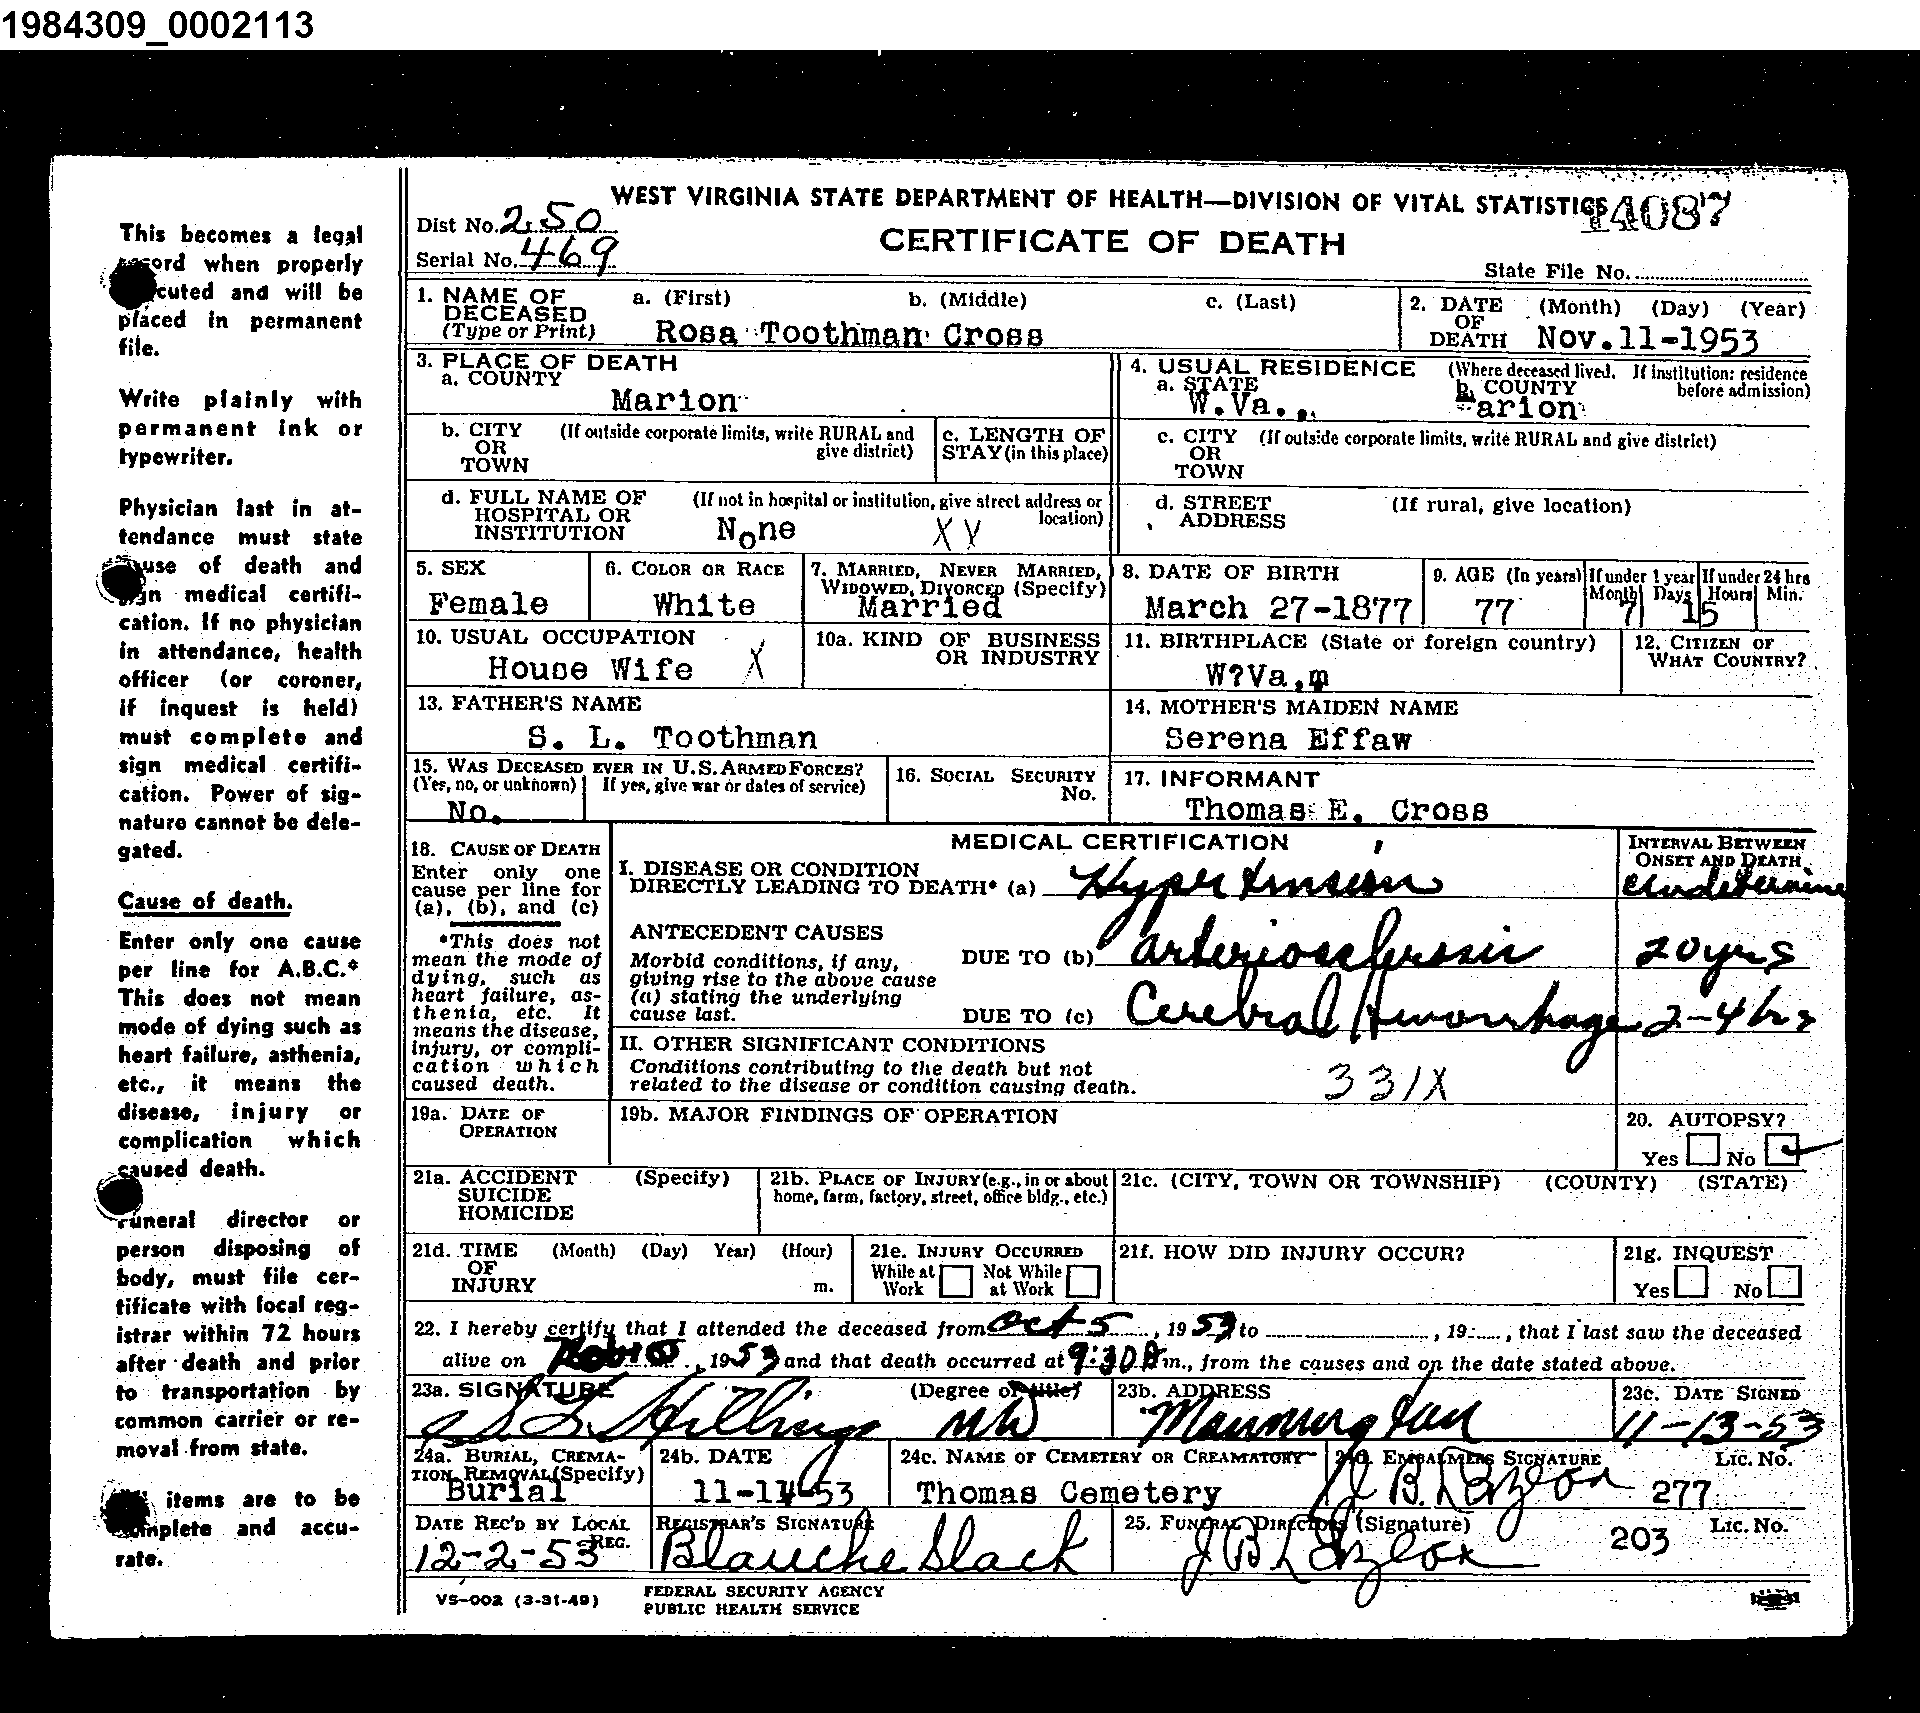 1984309_0002113
This becomes a legal
record when properly
executed and will be
placed in permanent
file.
Write plainly with
permanent ink or
typewriter.
Physician last in at-
tendance must state
cause of death and
sign medical certifi-
cation. If no physician
in attendance, health
officer (or coroner,
if inquest is held)
must complete and
sign medical certifi-
cation. Power of sig-
nature cannot be dele-
gated.
Cause of death.
Enter only one cause
per line for A.B.C.*
This does not mean
mode of dying such as
heart failure, asthenia,
etc., it means the
disease, injury or
complication which
caused death.
Funeral director or
person disposing of
body, must file cer-
tificate with local reg-
istrar within 72 hours
after death and prior
to transportation by
common carrier or re-
moval from state.
All items are to be
complete and accu-
rate.
WEST VIRGINIA STATE DEPARTMENT OF HEALTH—DIVISION OF VITAL STATISTICS 14087
Dist No. 250
CERTIFICATE OF DEATH
Serial No. 469
State File No.
1. NAME OF DECEASED (Type or Print) a. (First) b. (Middle) c. (Last)
Rosa Toothman Cross
2. DATE OF DEATH (Month) (Day) (Year)
Nov.11-1953
3. PLACE OF DEATH
a. COUNTY
Marion
4. USUAL RESIDENCE (Where deceased lived. If institution: residence before admission)
a. STATE b. COUNTY
W.Va.. arion
b. CITY OR TOWN (If outside corporate limits, write RURAL and give district)
c. LENGTH OF STAY (in this place)
c. CITY OR TOWN (If outside corporate limits, write RURAL and give district)
d. FULL NAME OF HOSPITAL OR INSTITUTION (If not in hospital or institution, give street address or location)
None X V
d. STREET ADDRESS (If rural, give location)
5. SEX
Female
6. COLOR OR RACE
White
7. MARRIED, NEVER MARRIED, WIDOWED, DIVORCED (Specify)
Married
8. DATE OF BIRTH
March 27-1877
9. AGE (In years) If under 1 year Months Days If under 24 hrs Hours Min.
77 7 15
10. USUAL OCCUPATION
House Wife X
10a. KIND OF BUSINESS OR INDUSTRY
11. BIRTHPLACE (State or foreign country)
W?Va,m
12. CITIZEN OF WHAT COUNTRY?
13. FATHER'S NAME
S. L. Toothman
14. MOTHER'S MAIDEN NAME
Serena Effaw
15. WAS DECEASED EVER IN U.S. ARMED FORCES?
(Yes, no, or unknown) If yes, give war or dates of service)
No.
16. SOCIAL SECURITY No.
17. INFORMANT
Thomas E. Cross
18. CAUSE OF DEATH
Enter only one
cause per line for
(a), (b), and (c)
*This does not
mean the mode of
dying, such as
heart failure, as-
thenia, etc. It
means the disease,
injury, or compli-
cation which
caused death.
MEDICAL CERTIFICATION
INTERVAL BETWEEN ONSET AND DEATH
I. DISEASE OR CONDITION
DIRECTLY LEADING TO DEATH* (a) Hypertension
ANTECEDENT CAUSES
Morbid conditions, if any,
giving rise to the above cause
(a) stating the underlying
cause last.
DUE TO (b) arteriosclerosis 20 yrs
DUE TO (c) Cerebral Hemorrhage 2-4 hrs
II. OTHER SIGNIFICANT CONDITIONS
Conditions contributing to the death but not
related to the disease or condition causing death.
331X
19a. DATE OF OPERATION
19b. MAJOR FINDINGS OF OPERATION
20. AUTOPSY?
Yes No
21a. ACCIDENT SUICIDE HOMICIDE (Specify)
21b. PLACE OF INJURY (e.g., in or about home, farm, factory, street, office bldg., etc.)
21c. (CITY, TOWN OR TOWNSHIP) (COUNTY) (STATE)
21d. TIME OF INJURY (Month) (Day) Year) (Hour) m.
21e. INJURY OCCURRED
While at Work Not While at Work
21f. HOW DID INJURY OCCUR?
21g. INQUEST
Yes No
22. I hereby certify that I attended the deceased from Oct 5, 1953 to , 19 , that I last saw the deceased
alive on , 1953 and that death occurred at 9:30 A m., from the causes and on the date stated above.
23a. SIGNATURE (Degree or title)
23b. ADDRESS
Mannington
23c. DATE SIGNED
11-13-53
24a. BURIAL, CREMATION REMOVAL (Specify)
Burial
24b. DATE
11-14-53
24c. NAME OF CEMETERY OR CREAMATORY
Thomas Cemetery
24d. EMBALMERS SIGNATURE Lic. No.
277
DATE REC'D BY LOCAL REG.
12-2-53
REGISTRAR'S SIGNATURE
Blanche Slack
25. FUNERAL DIRECTORS (Signature) Lic. No.
203
VS-002 (3-31-49)
FEDERAL SECURITY AGENCY
PUBLIC HEALTH SERVICE